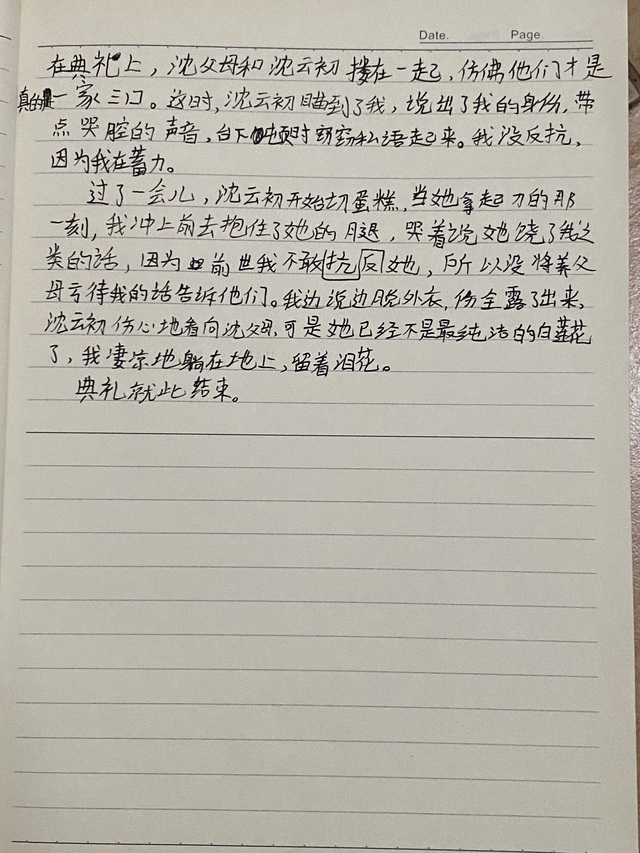 Date. Page.
在典礼上，沈父母和沈云初搂在一起，仿佛他们才是
真的是一家三口。这时，沈云初瞄到了我，说出了我的身份，带
点哭腔的声音，台下顿时窃窃私语起来。我没反抗，
因为我在蓄力。
过了一会儿，沈云初开始切蛋糕，当她拿起刀的那
一刻，我冲上前去抱住了她的腿，哭着说她饶了我这
类的话，因为前世我不敢抗反她，所以没将养父
母亏待我的话告诉他们。我边说边脱外衣，伤全露了出来，
沈云初伤心地看向沈父母，可是她已经不是最纯洁的白莲花
了，我凄凉地躺在地上，留着泪花。
典礼就此结束。